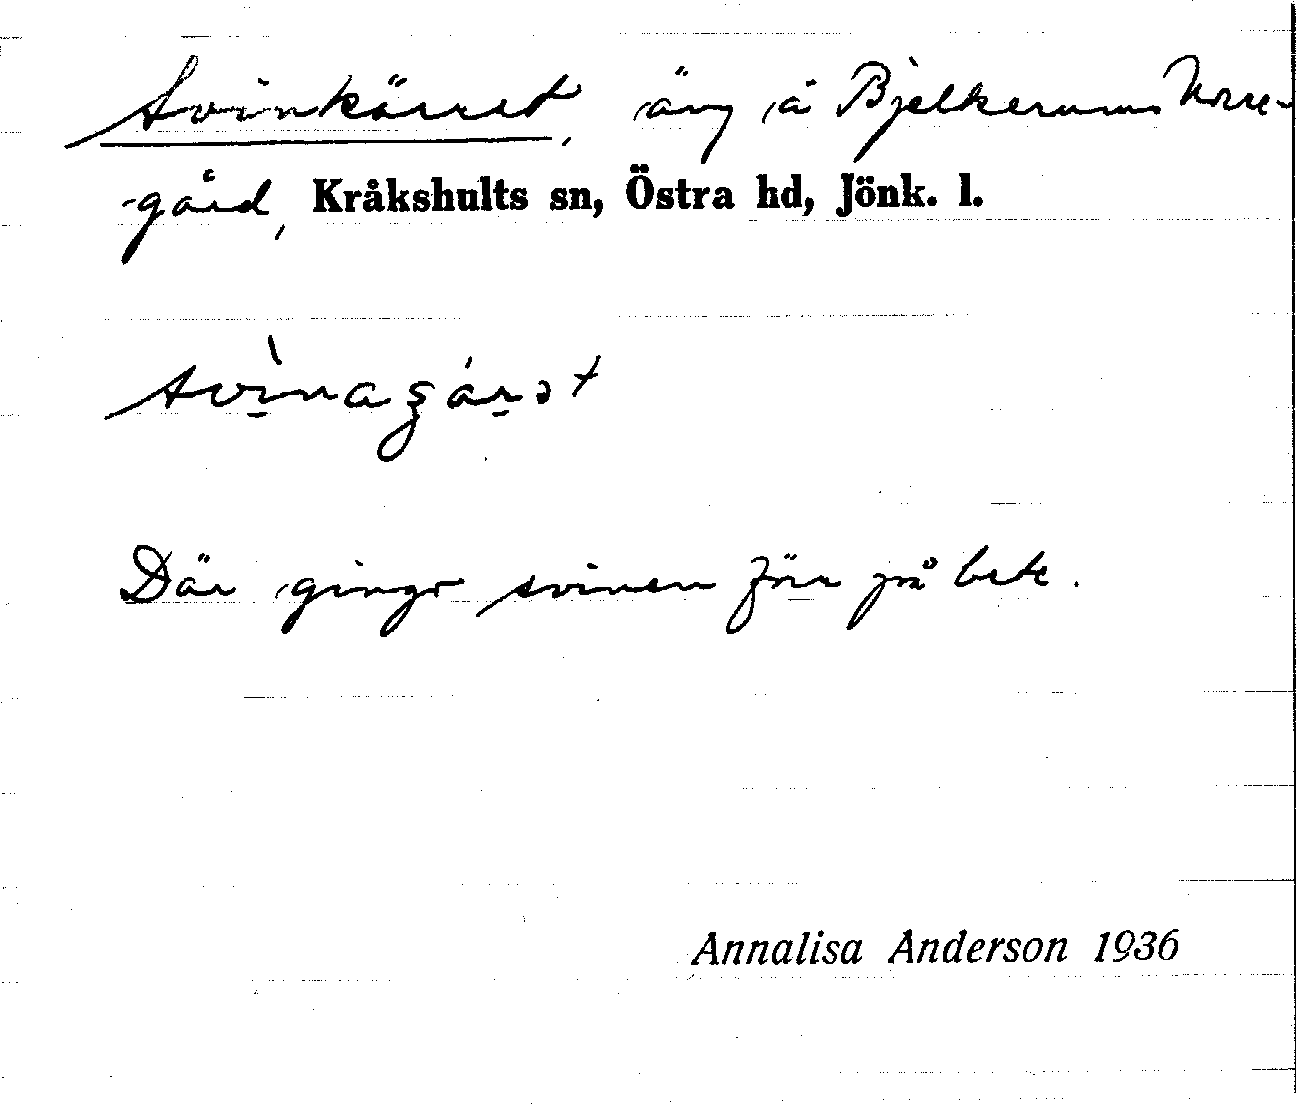 Svinkärret, äng å Bjelkerums Norre-
-gård, Kråkshults sn, Östra hd, Jönk. l.
Där gingo svinen förr på bete.
Annalisa Anderson 1936